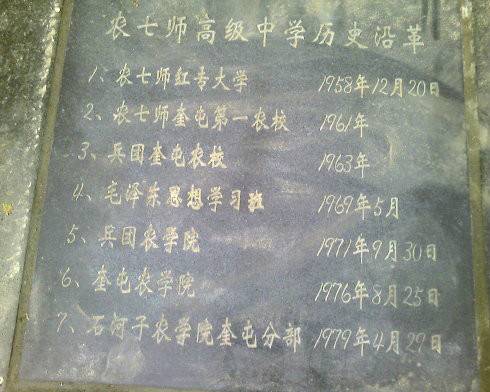 农七师高级中学历史沿革
1、农七师红专大学 1958年12月20日
2、农七师奎屯第一农校 1961年
3、兵团奎屯农校 1963年
4、毛泽东思想学习班 1969年5月
5、兵团农学院 1971年9月30日
6、奎屯农学院 1976年8月25日
7、石河子农学院奎屯分部 1979年4月29日